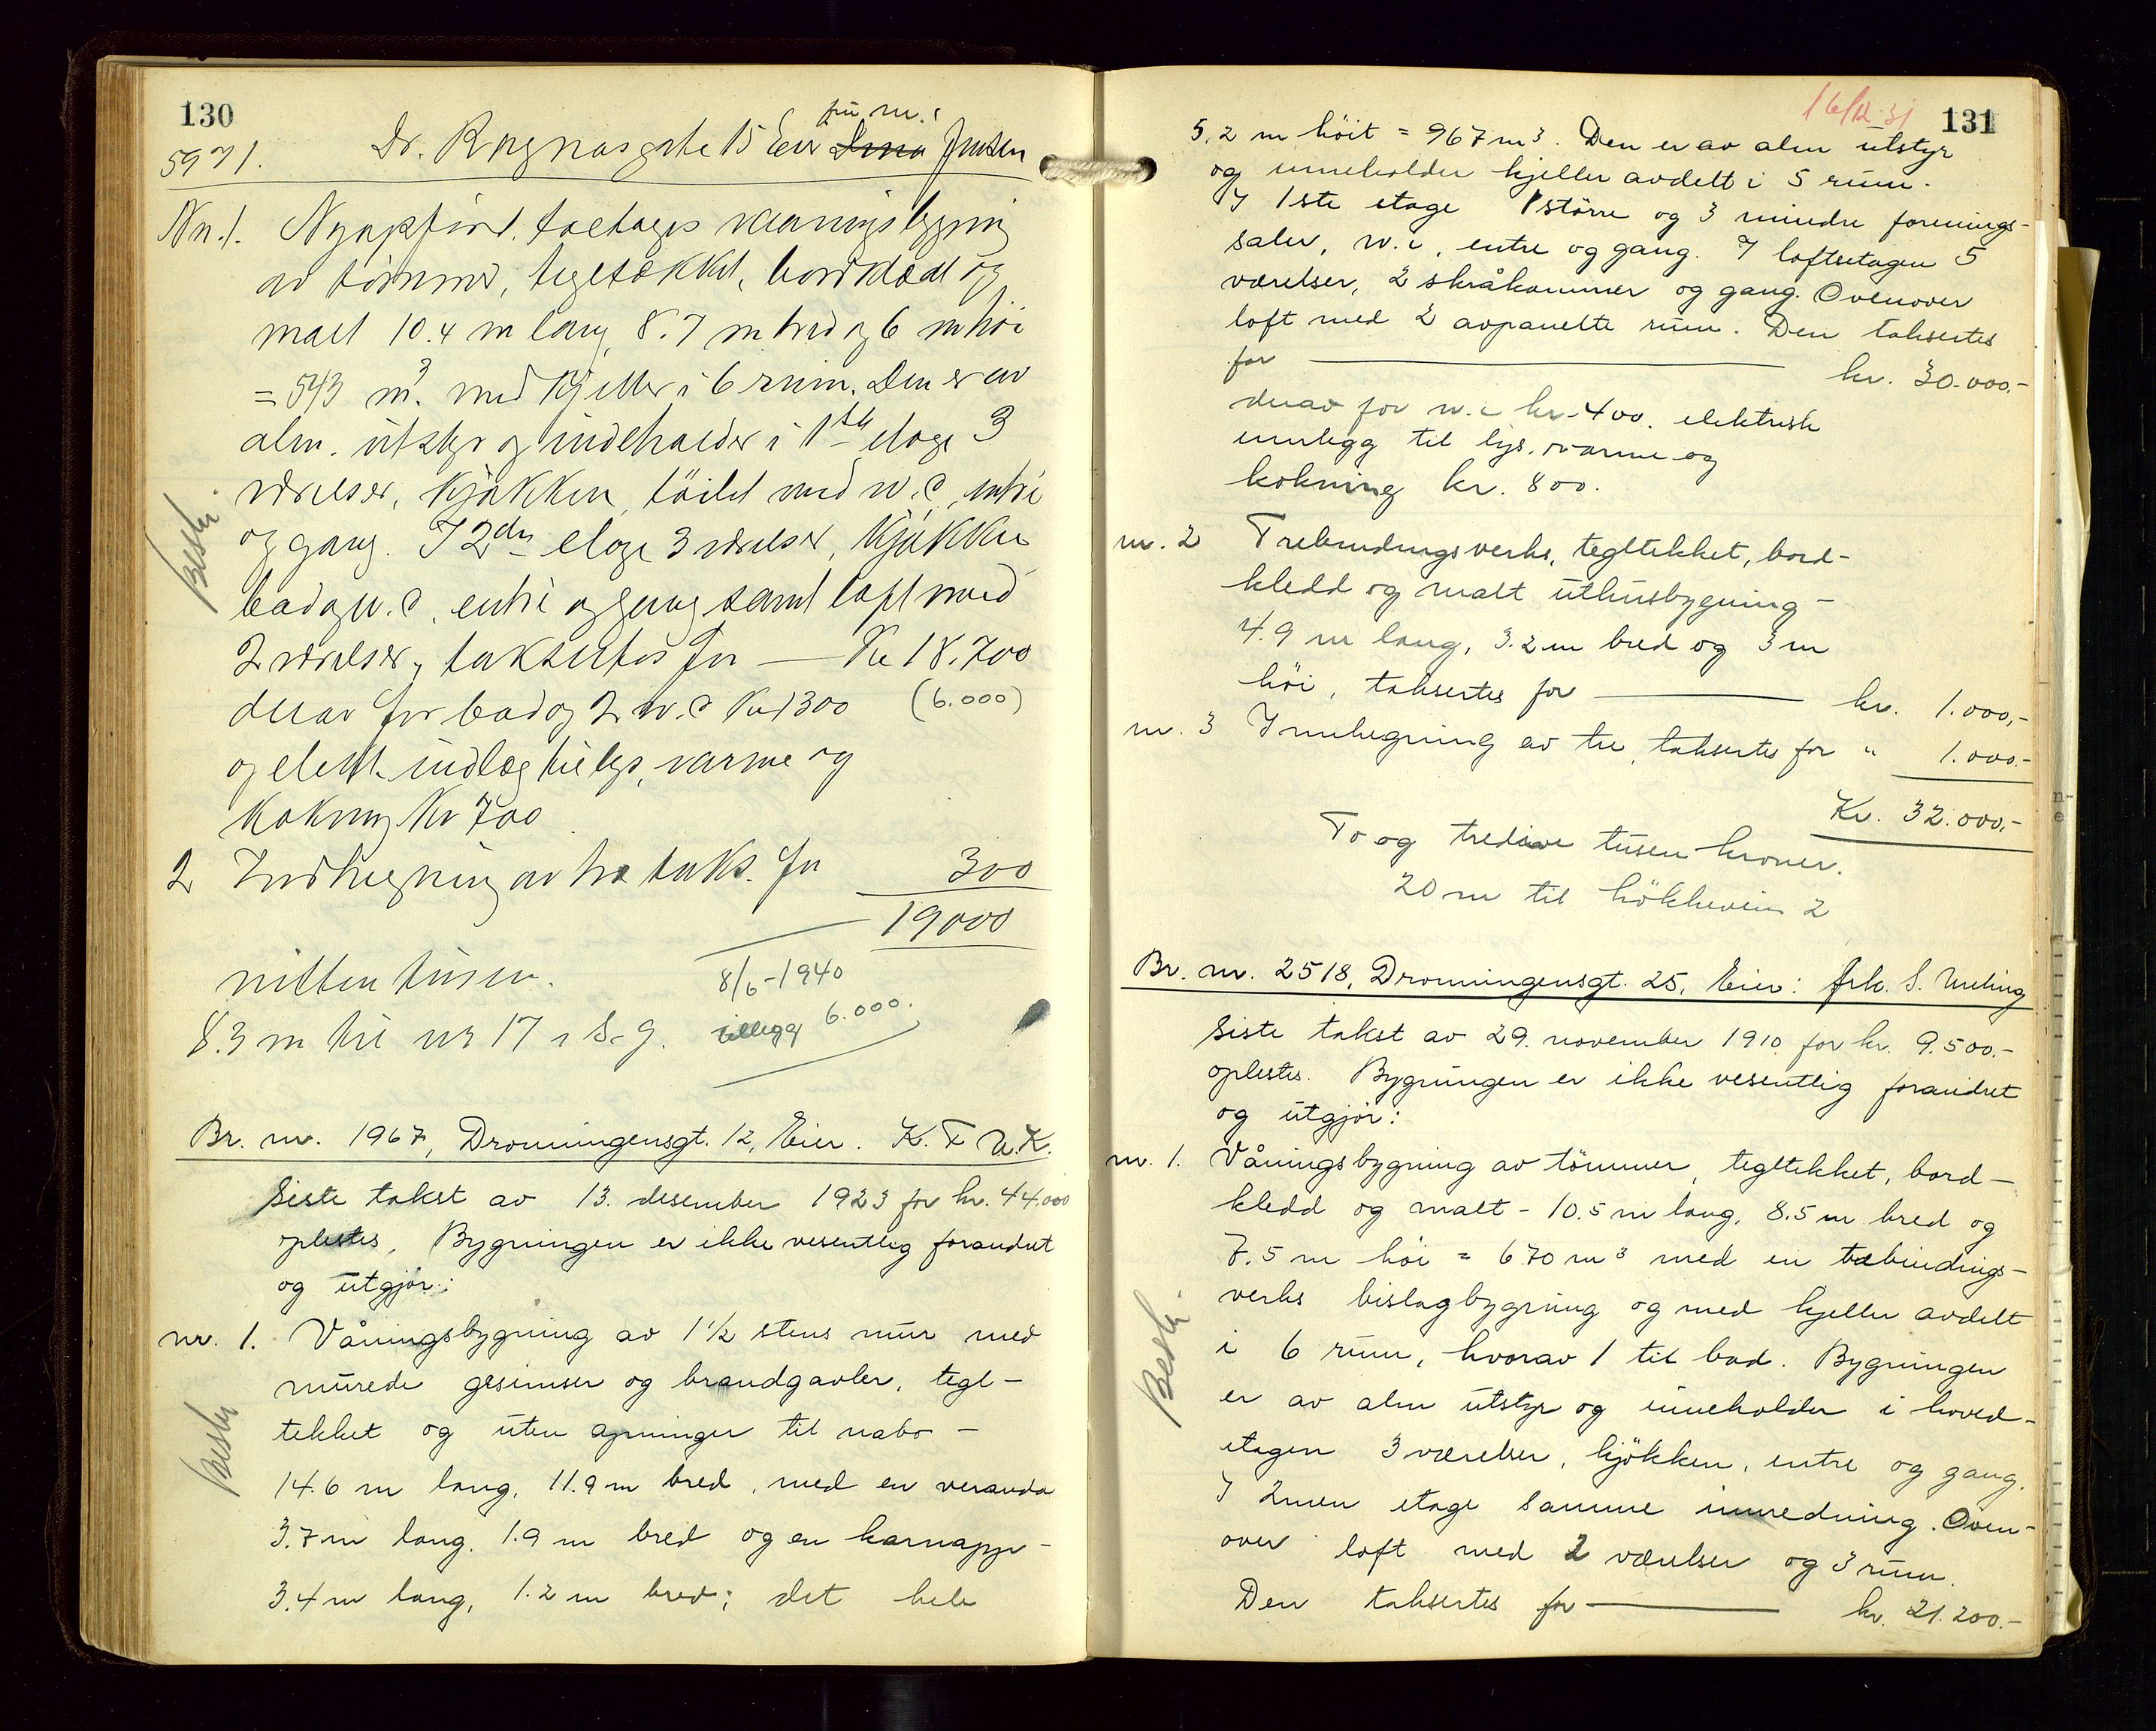 130
5971. Dr. Ragnasgate 15 Eier Jensen
Nr. 1. Nyopført, toetages vaaningsbygning
av tømmer, teglstækket, bordklædt og
malt 10.4 m lang, 8.7 m bred og 6 m høi
= 543 m³. med kjelder i 6 rum. Den er av
alm. utstyr og indeholder i 1ste etage 3
værelser, kjøkken, toilet med w.c., entre
og gang. I 2den etage 3 værelser, kjøkken
bad og w.c. entre og gang samt loft med
2 værelser, taksertes for — Kr 18.700
derav for bad og 2 w.c Kr 1300 (6.000)
og elektr. indlæg til lys, varme og
kokning Kr 700
Beskr.
2 Indhegning av træ taks. for 300
19000
nitten tusen.
8.3 m til nr 17 i S. g.
8/6-1940
tillegg 6.000.
Br. nr. 1967, Dronningensgt. 12, Eier. K. F. U. K.
Siste takst av 13. desember 1923 for kr. 44.000
oplestes. Bygningen er ikke vesentlig forandret
og utgjør:
nr. 1. Våningsbygning av 1 1/2 stens mur med
murede gesimser og brandgavler, tegl-
tekket og uten apninger til nabo -
Beskr
14.6 m lang, 11.9 m bred, med en veranda
3.7 m lang, 1.9 m bred og en karnapp -
3.4 m lang, 1.2 m bred; det hele
16/12-31 131
5.2 m höit = 967 m³. Den er av alm utstyr
og inneholder kjeller avdelt i 5 rum.
I 1ste etage 1 större og 3 mindre forenings-
saler, w.c, entre og gang. I loftsetagen 5
værelser, 2 skråkammer og gang. Ovenover
loft med 2 avpanelte rum. Den taksertes
for — kr. 30.000.-
derav for w.c kr. 400. elektrisk
innlegg til lys, varme og
kokning kr. 800.
nr. 2 Trebindingsverks, tegltekket, bord-
kledd og malt uthusbygning -
4.9 m lang, 3.2 m bred og 3 m
höi, taksertes for — kr. 1.000,-
nr. 3 Innhegning av tre, taksertes for " 1.000.-
Kr. 32.000,-
To og tredive tusen kroner.
20 m til 2
Br. nr. 2518, Dronningensgt. 25, Eier: frk. S. Meling
Siste takst av 29. november 1910 for kr. 9.500.-
oplestes. Bygningen er ikke vesentlig forandret
og utgjör:
nr. 1. Våningsbygning av tömmer, tegltekket, bord-
kledd og malt - 10.5 m lang, 8.5 m bred og
7.5 m höi = 670 m³ med en trebindings-
verks bislagbygning og med kjeller avdelt
i 6 rum, hvorav 1 til bad. Bygningen
Beskr.
er av alm utstyr og inneholder i hoved-
etagen 3 værelser, kjökken, entre og gang.
I 2nen etage samme innredning. Oven-
over loft med 2 værelser og 3 rum.
Den taksertes for — kr. 21.200.-